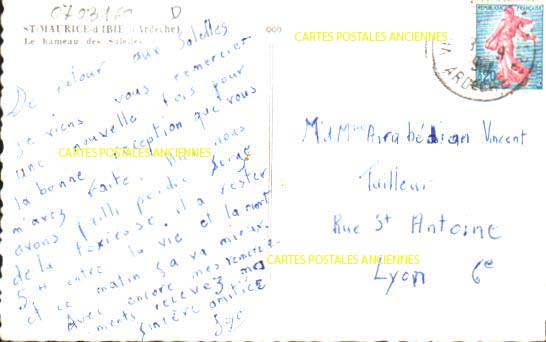 0703160 D
ST-MAURICE-d'IBIE (Ardèche)
Le hameau des Salelles
000
CARTES POSTALES ANCIENNES
REPUBLIQUE FRANÇAISE
ARDECHE
De retour aux Salelles
je viens vous remercier
une nouvelle fois pour
la bonne réception que vous
CARTES POSTALES ANCIENNES
m'avez faite. Hier nous
avons failli perdre Serge
de la toxicose. il a rester
5 H entre la vie et la mort
et ce matin ça va mieux.
Avec encore mes remercie-
ments recevez ma
sincère amitiée
M et Mme Airabédian Vincent
Tailleur
Rue St Antoine
CARTES POSTALES ANCIENNES
Lyon 6e